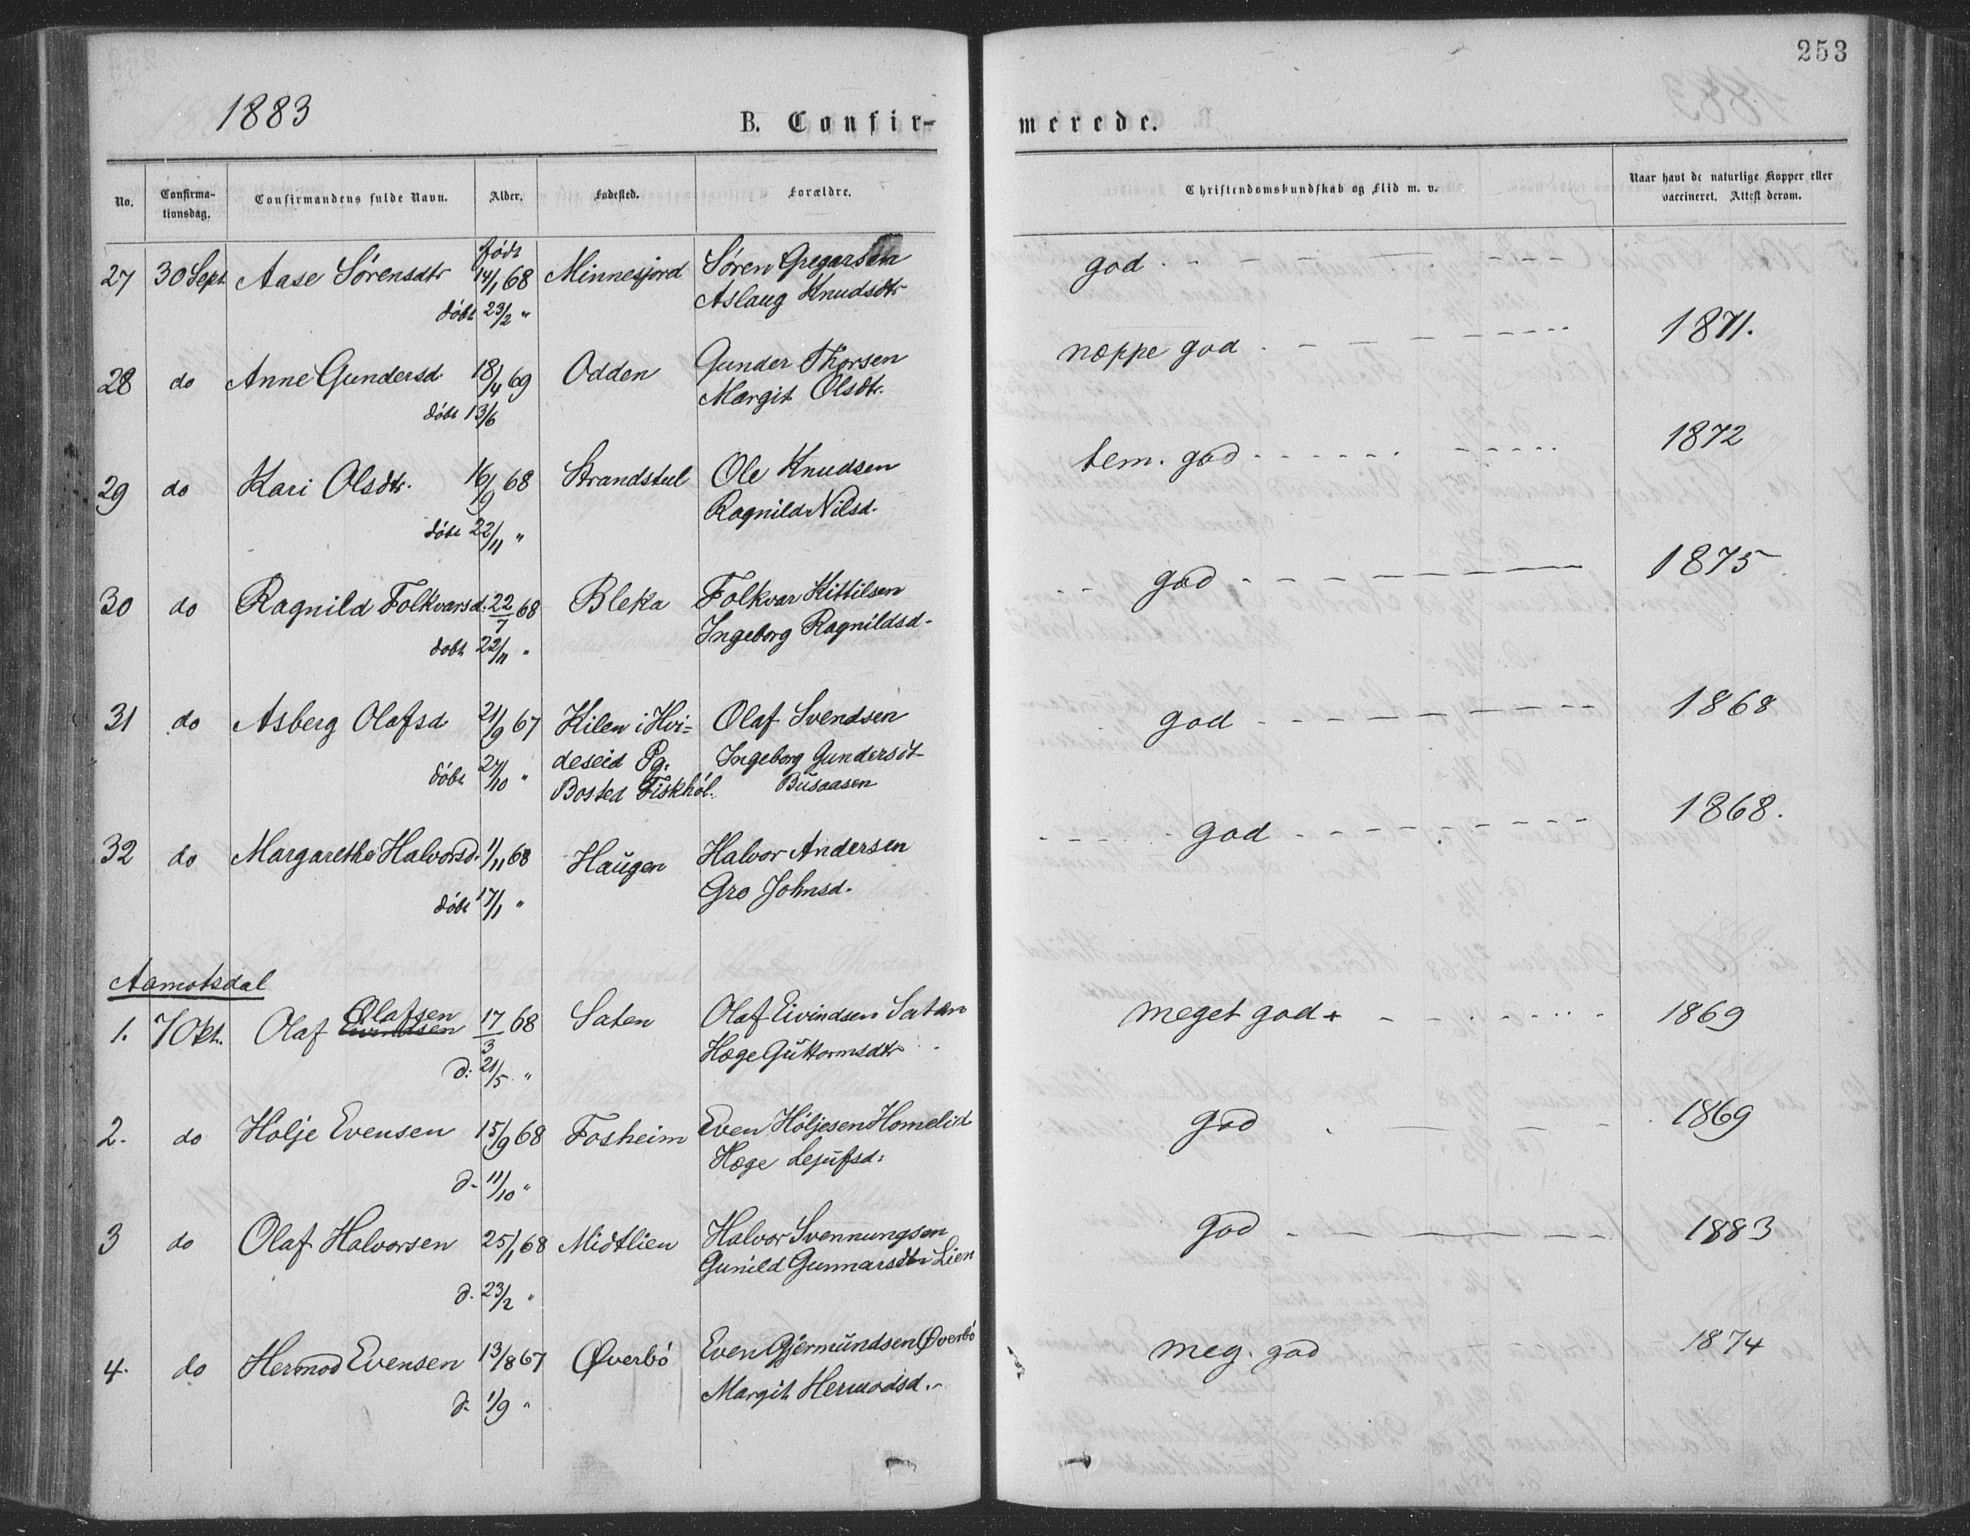 253
1883
B. Confir- merede.
No. Confirma- Confirmandens fulde Navn. Alder. Fødested. Forældre. Christendomskundskab og Flid m. v. Naar havt de naturlige Kopper eller
tionsdag. vaccineret. Attest derom.
født
27 30 Sept Aase Sørensdtr 14/1 68 Minnesjord Søren Gregarsen god
døbt 23/2 " Aslaug Knudsdtr
28 do Anne Gundersd. 18/4 69 Odden Gunder Thorsen næppe god 1871.
døbt 13/6 Margit Olsdtr.
29 do Kari Olsdtr. 16/9 68 Strandstul Ole Knudsen tem. god 1872
døbt 22/11 " Ragnild Nilsd.
30 do Ragnild Folkvarsd. 22/7 68 Bleka Folkvar Kittilsen god 1875
døbt 22/11 " Ingeborg Ragnildsd.
31 do Asberg Olafsd 21/9 67 Kilen i Hvi= Olaf Svendsen god 1868
døbt 27/10 " deseid Pg. Ingeborg Gundersdt
Bosted Fiskhøl. Busaasen
32 do Margarethe Halvorsd. 1/11 68 Haugen Halvor Andersen god 1868.
døbt 17/1 " Gro Johnsd.
Aamotsdal
Olafsen
1. 7 Okt. Olaf Eivindsen 17/3 68 Saten Olaf Eivindsen Saten meget god + 1869
d: 21/5 " Hæge Guttormsdtr
2. do Holje Evensen 15/9 68 Fosheim Even Høljesen Homelid god 1869
d. 11/10 " Hæge Lejufsd:
3 do Olaf Halvorsen 25/1 68 Midtlien Halvor Svennungsen god 1883
d. 23/2 " Gunild Gunnarsdtr Lien
4. do Hermod Evensen 13/8 67 Øverbø Even Gjermundsen Øverbø meg. god 1874
d. 1/9 " Margit Hermodsd.